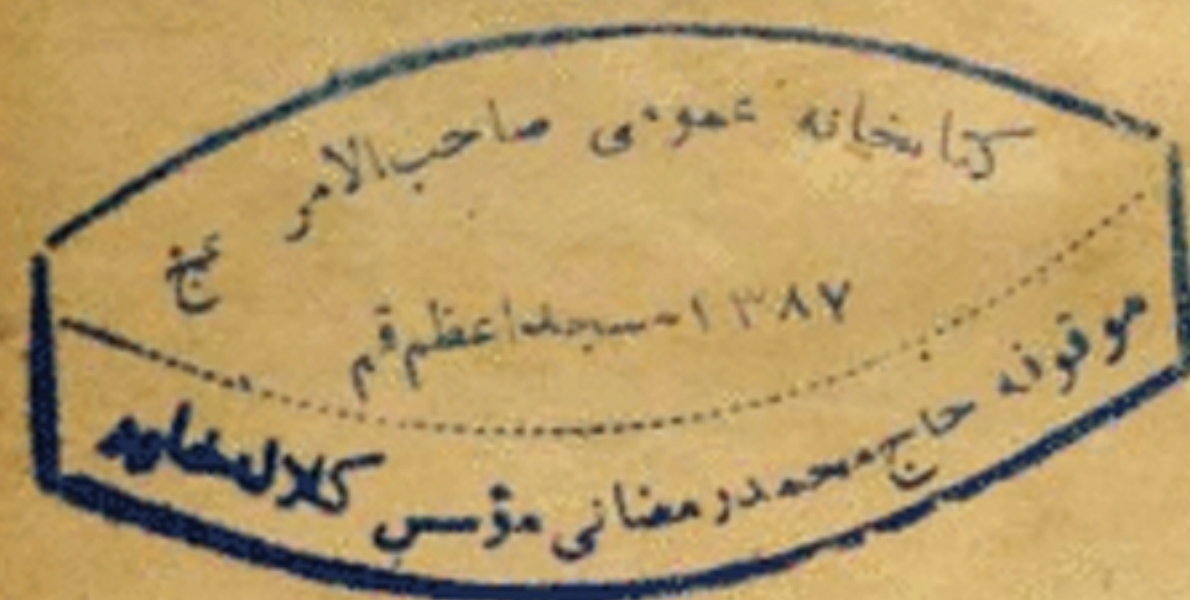 کتابخانه عمومی صاحب‌الامر عج
۱۳۸۷ - مسجد اعظم قم
موقوفه حاج محمد رمضانی مؤسس کلاله خاور